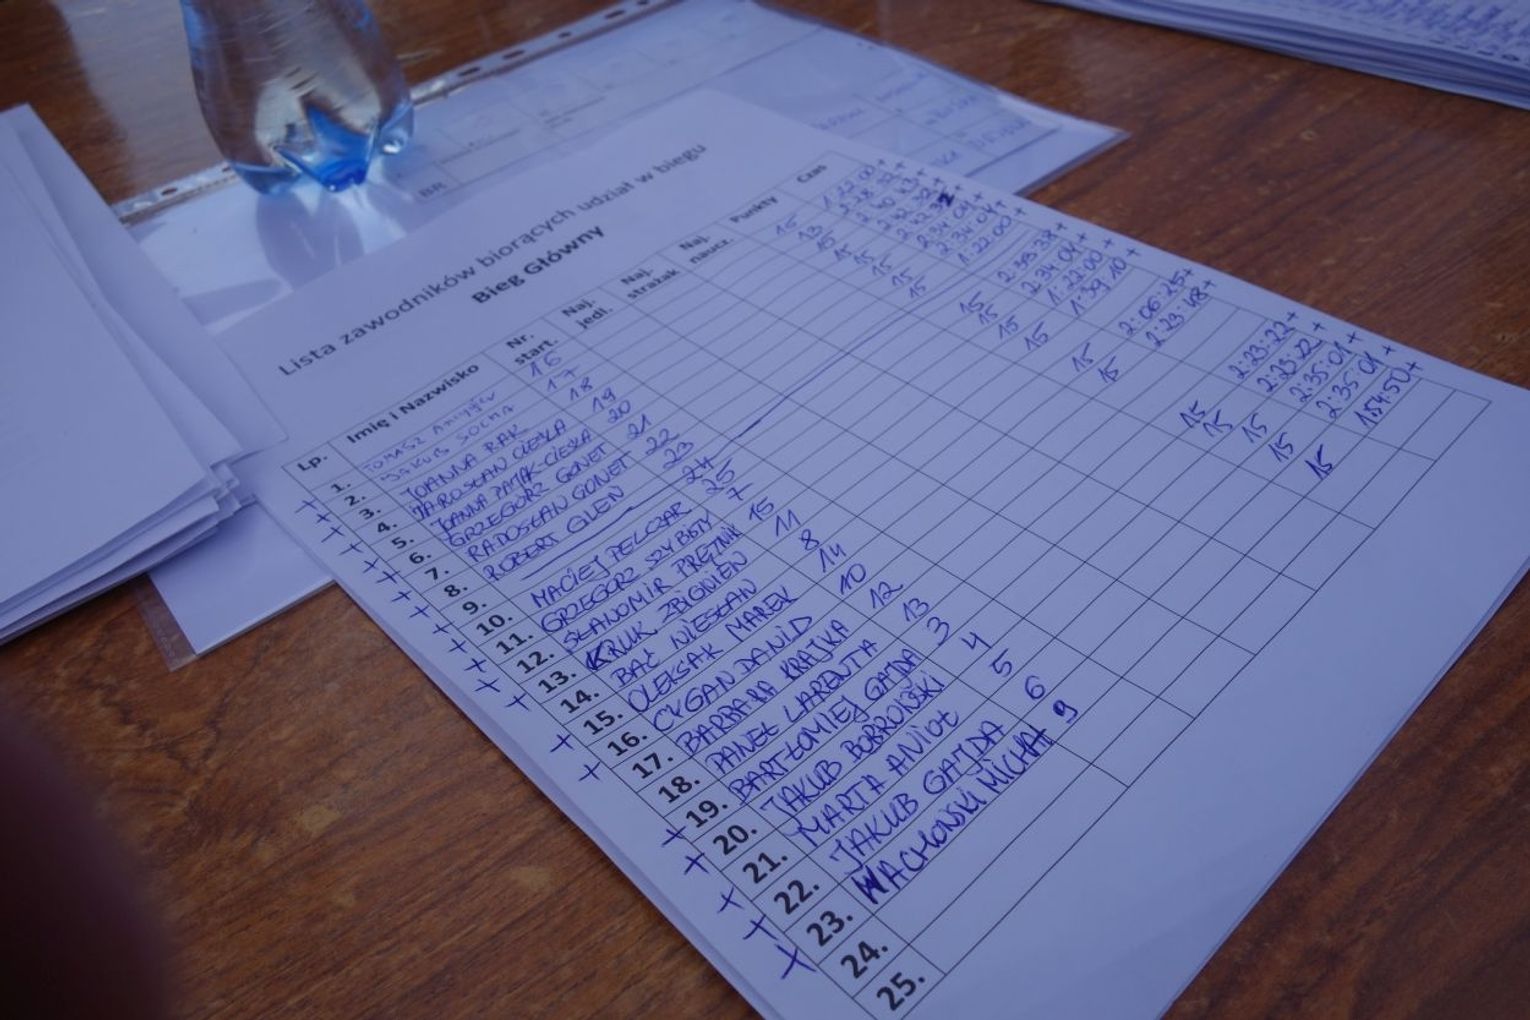 BR
Lista zawodników biorących udział w biegu
Bieg Główny
Lp. Imię i Nazwisko Nr. start. Naj. jedl. Naj. strażak Naj. naucz. Punkty Czas
+ 1. TOMASZ 16 15 1:22:00 +
+ 2. JAKUB SOCHA 17 +
+ 3. JOANNA BĄK 18 15 +
+ 4. JAROSŁAW CIEŚLA 19 15 +
+ 5. JOANNA PAJĄK-CIEŚLA 20 15 +
+ 6. GRZEGORZ GONET 21 15 2:34:01 +
+ 7. RADOSŁAW GONET 22 15 2:34:01 +
+ 8. ROBERT GLEŃ 23 15 1:22:00 +
9. 24
+ 10. MACIEJ PELCZAR 25 15 2:38:38 +
+ 11. GRZEGORZ SZYBISTY 7 15 2:34:01 +
+ 12. SŁAWOMIR PRĘTNIK 15 15 1:22:00 +
+ 13. KRUK ZBIGNIEW 11 15 1:39:10 +
14. BAĆ WIESŁAW 8
+ 15. OLEKSAK MAREK 14 15 2:06:25 +
+ 16. CYGAN DAWID 10 15 2:23:48 +
17. BARBARA KRAJKA 12
18. PAWEŁ LARENTA 13
+ 19. BARTŁOMIEJ GAJDA 3 15 2:23:22 +
+ 20. JAKUB BOBROWSKI 4 15 2:23:22 +
+ 21. MARTA ANIOŁ 5 15 2:35:01 +
+ 22. JAKUB GAJDA 6 15 2:35:01 +
+ 23. WACHOWSKI MICHAŁ 9 15 1:54:50 +
24.
25.